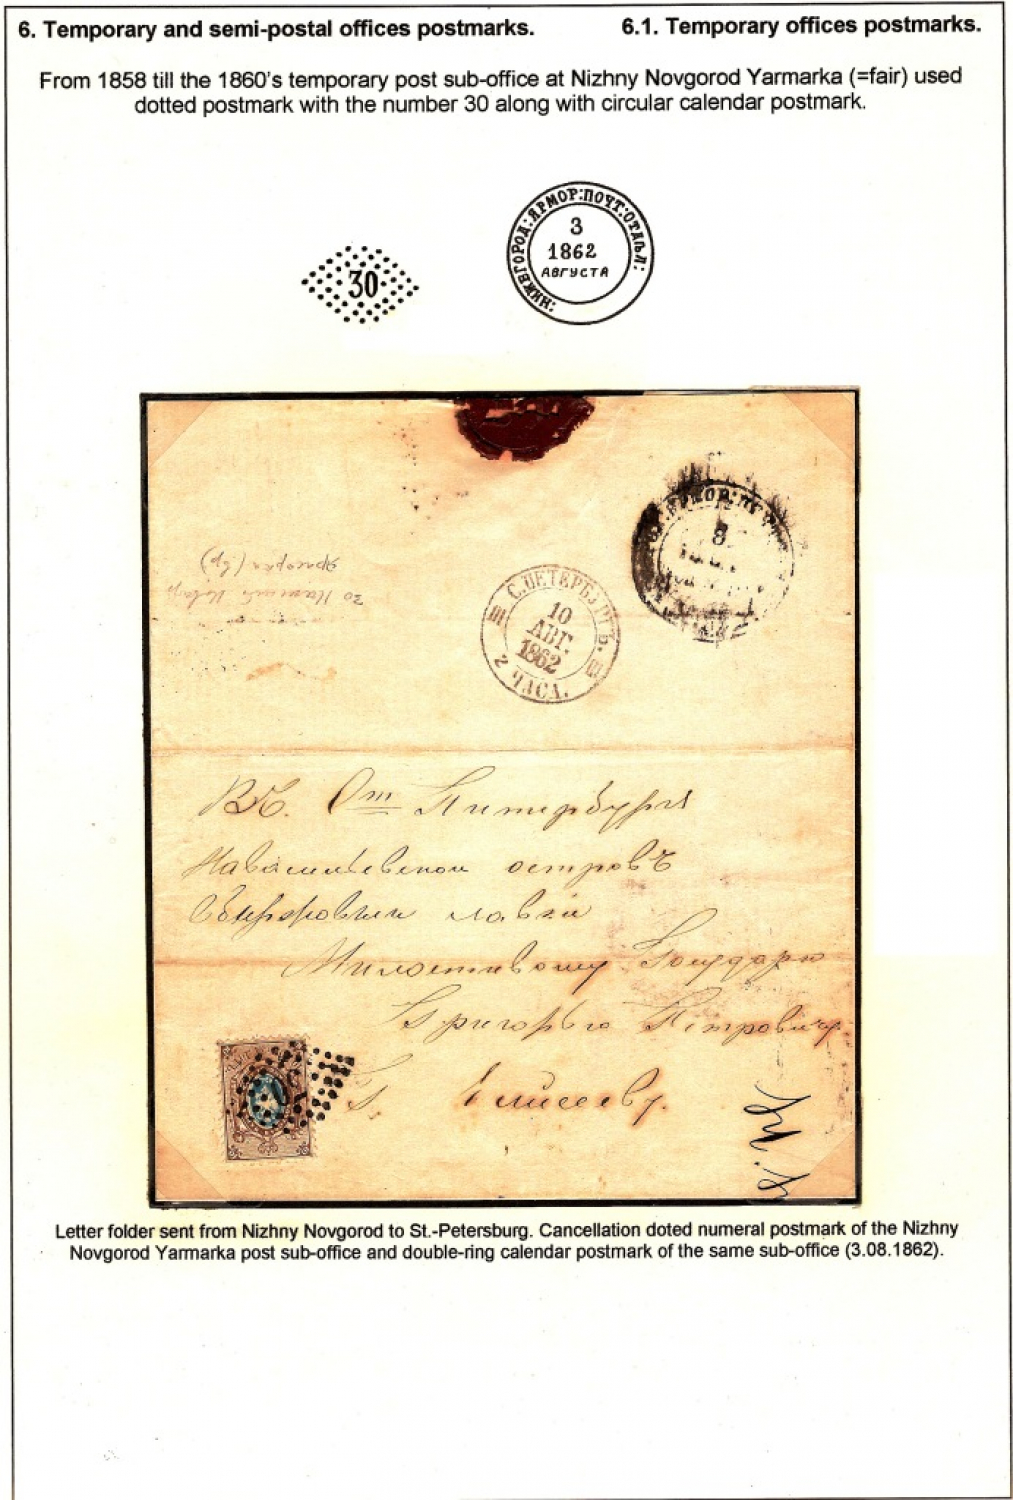 6. Temporary and semi-postal offices postmarks. 6.1. Temporary offices postmarks.
From 1858 till the 1860's temporary post sub-office at Nizhny Novgorod Yarmarka (=fair) used
dotted postmark with the number 30 along with circular calendar postmark.
30
НИЖЕГОРОД:ЯРМОР:ПОЧТ:ОТДѢЛ:
3
1862
АВГУСТА
ЯРМОР:ПОЧТ
С.ПЕТЕРБУРГЪ.
10
АВГ.
1862
2 ЧАСА.
30
От Питербурга
островъ
лавки
Милостивому Государю
Григорью Петровичу
Г. Елисееву.
Letter folder sent from Nizhny Novgorod to St.-Petersburg. Cancellation doted numeral postmark of the Nizhny
Novgorod Yarmarka post sub-office and double-ring calendar postmark of the same sub-office (3.08.1862).